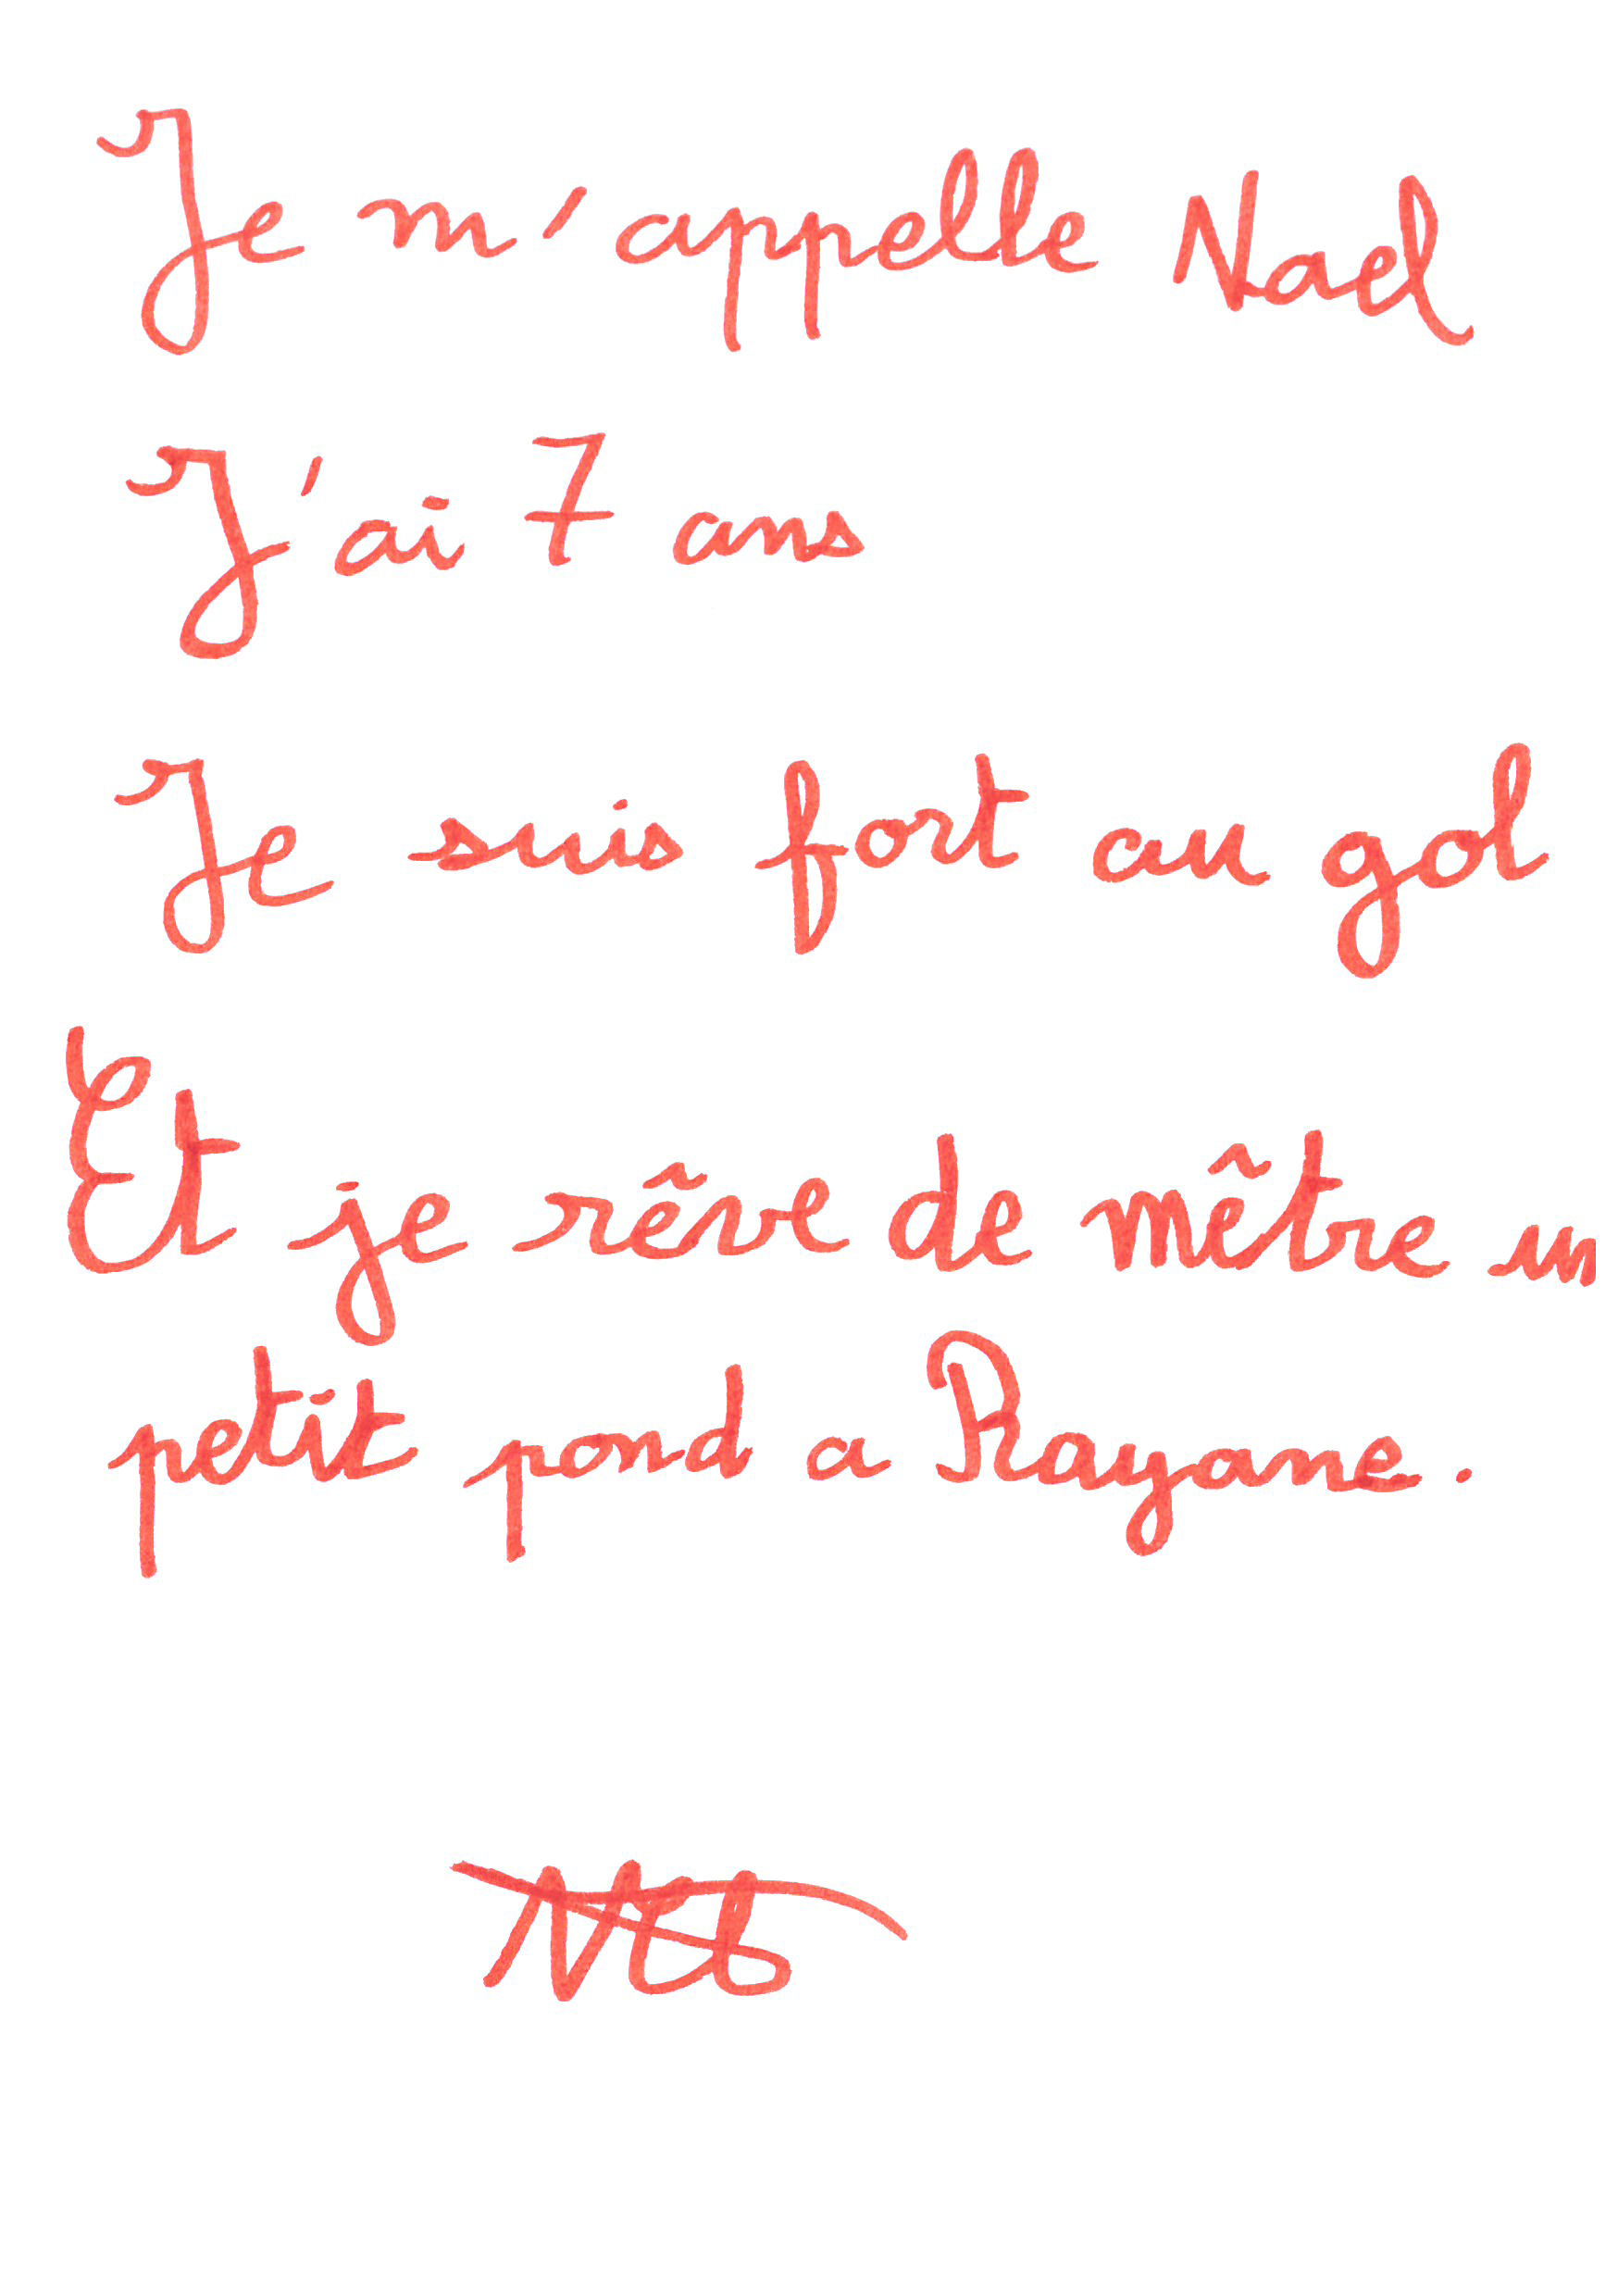 Je m'appelle Nael
J'ai 7 ans
Je suis fort au gol
Et je rêve de mêtre un
petit pond a Rayane.